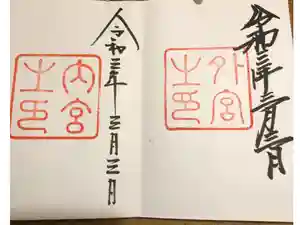 令和三年三月三日
外宮
之印
令和三年三月三日
内宮
之印